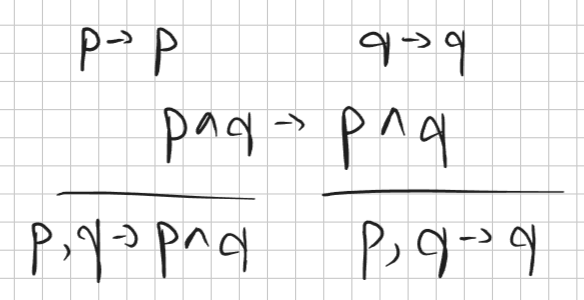 p → p    q → q
p ∧ q → p ∧ q
p, q → p ∧ q    p, q → q